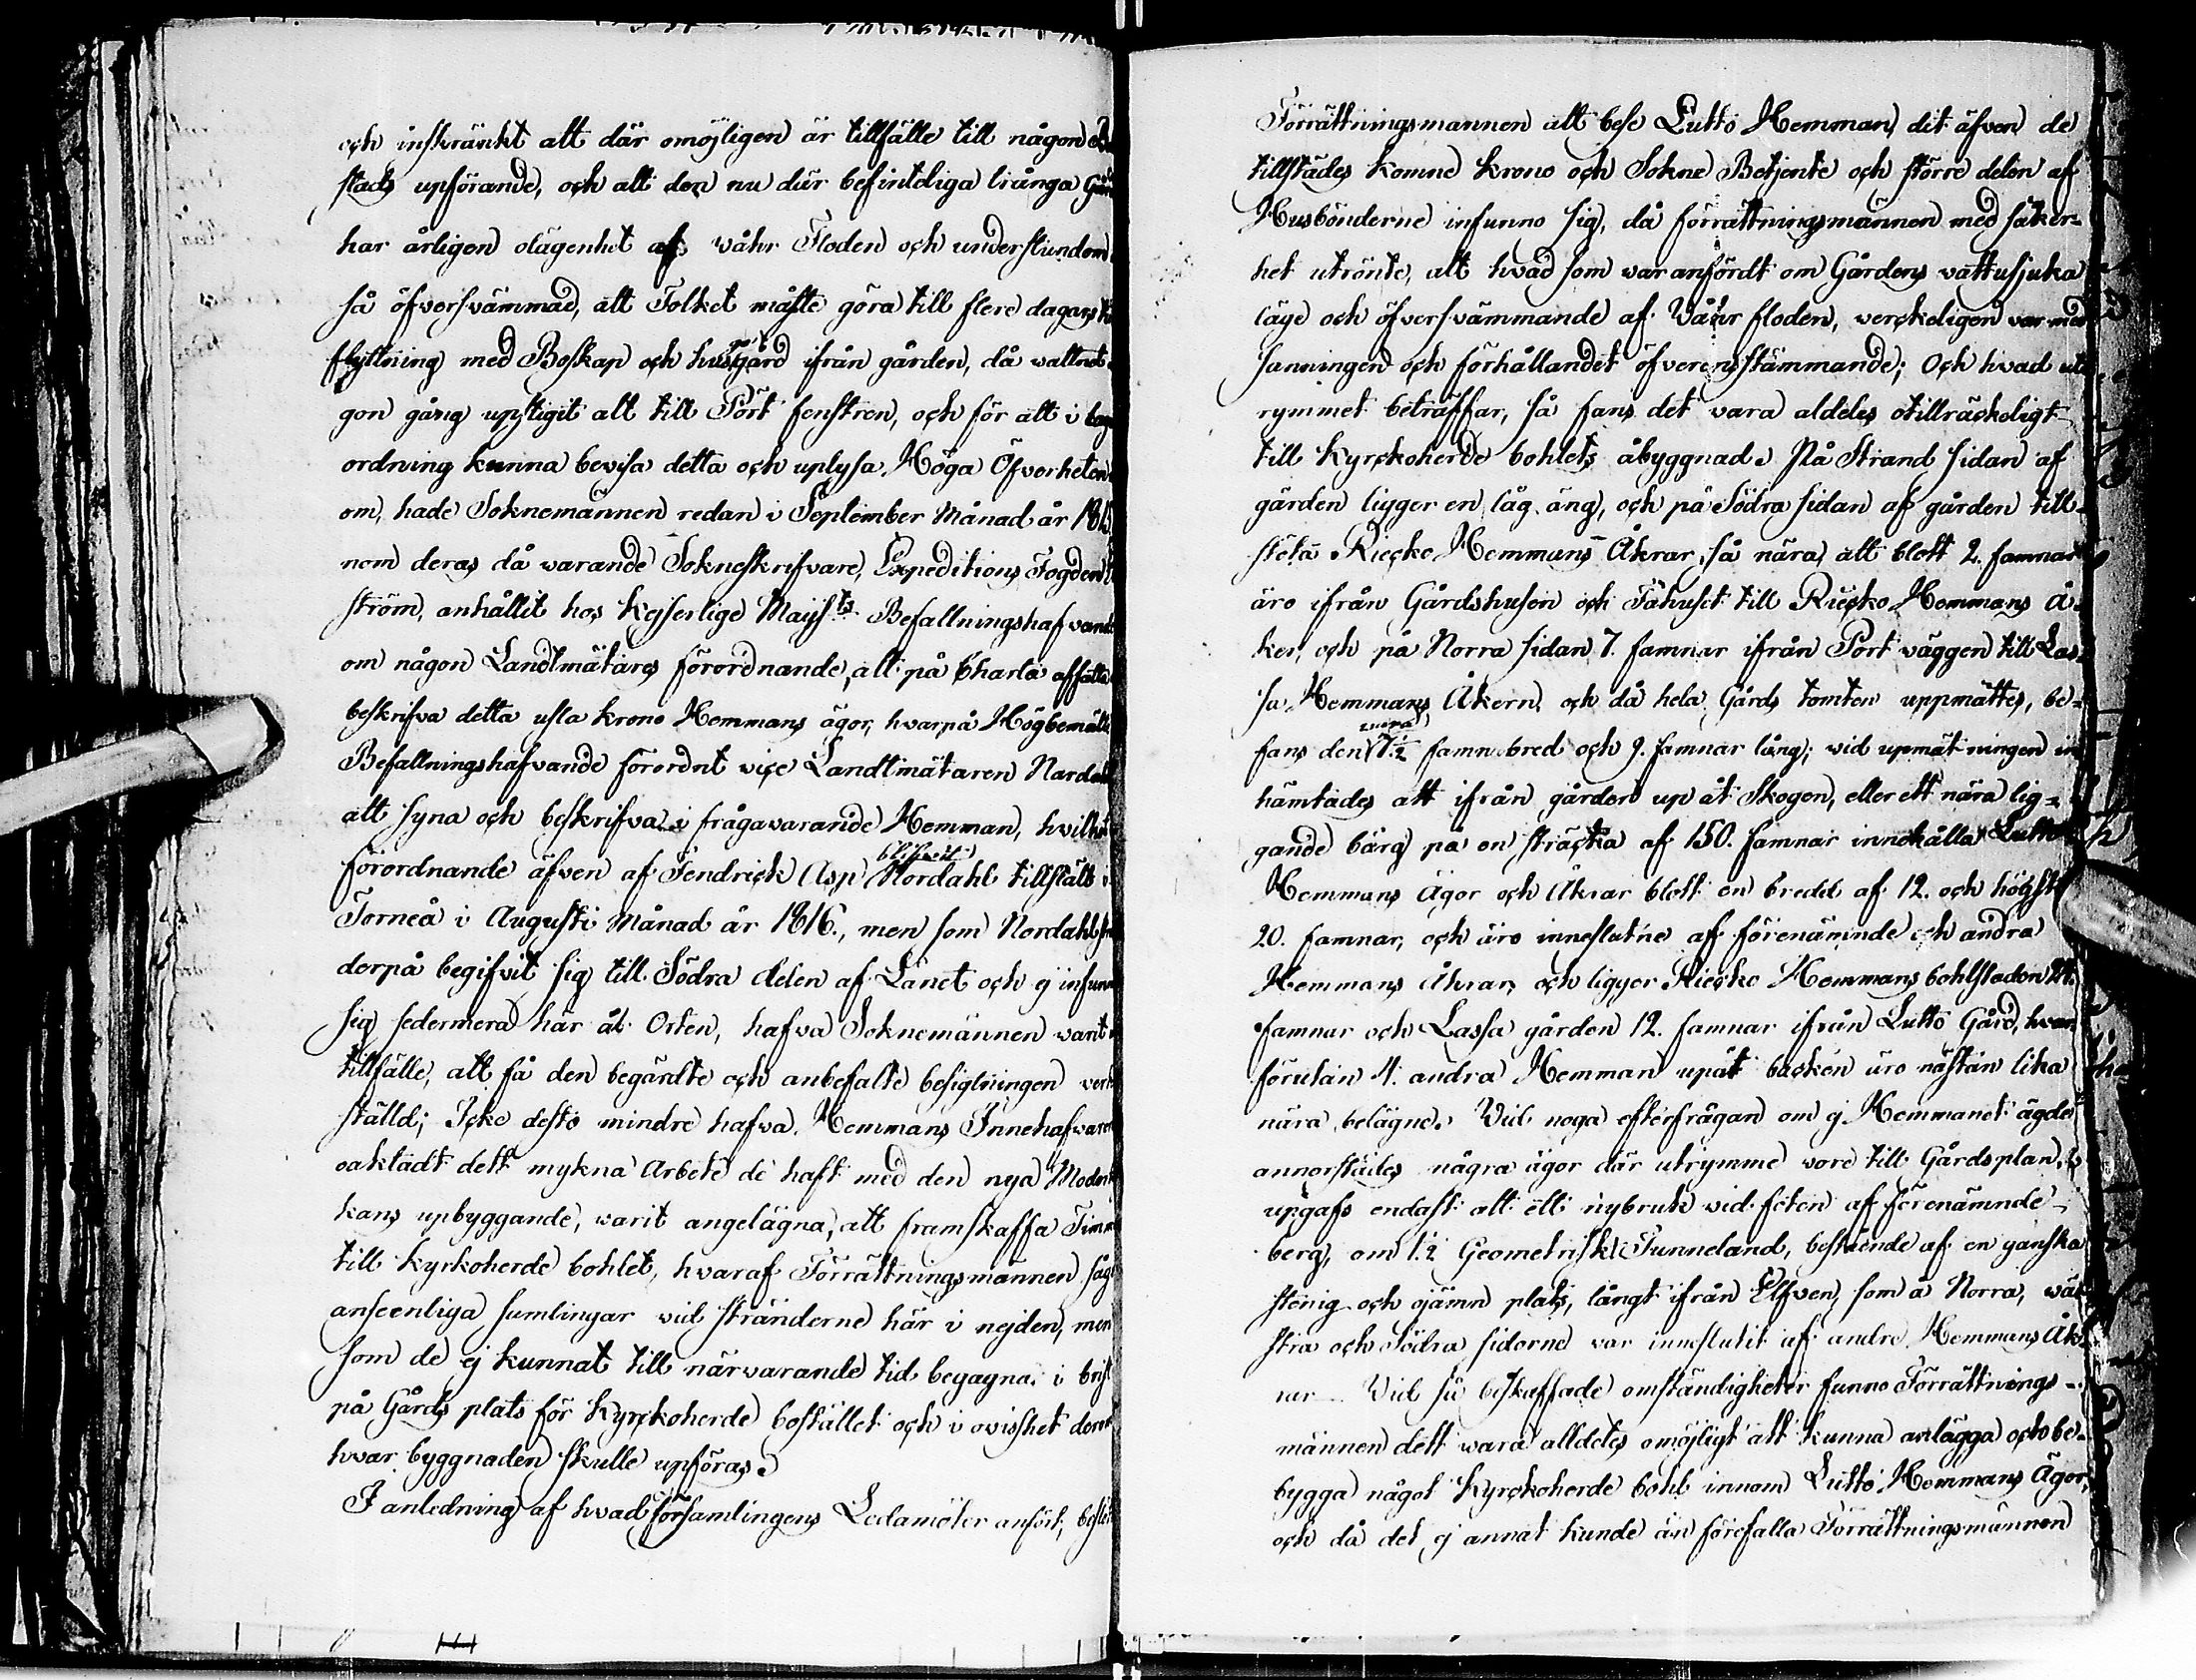 och inskränkt att där omöjligen är tillfälle till någon
stads upförande, och att den nu där befinteliga trånga
har årligen olägenhet af wåhr Floden och understundom
så öfversvämmad, att Folket måste göra till flere dagars
flyttning med Boskap och husgärd ifrån gården, då wattnet
gon gång upstigit alt till Pört fenstren, och för att i
ordning kunna bevisa detta och uplysa Höga Öfverheten
om, hade Soknemännen redan i September Månad år 1815
nom deras då warande Sokneskrifvare, Expeditions Fogden
ström, anhållit hos Kejserlige Majsts Befallningshafvande
om någon Landtmätares förordnande, att på Charta affatta
beskrifva detta usla krono Hemmans ägor, hvarpå Högbemälte
Befallningshafvande förordnt vice Landtmätaren Nordahl
att syna och beskrifva i frågavarande Hemman, hvilket
förordnande äfven af Fendrick Asp blifvit Nordahl tillstält i
Torneå i Augusti Månad år 1816., men som Nordahl
derpå begifvit sig till Södra delen af Länet och ej infunnit
sig sedermera här åt Orten, hafva Soknemännen warit
tillfälle, att få den begärdte och anbefalte besigtningen verk
ställd; Icke desto mindre hafva Hemmans Innehafvaren
oaktadt dett mykna Arbete de haft med den nya Moderkyr
kans upbyggande, warit angelägna, att framskaffa Timmer
till Kyrkoherde bohlet, hvaraf Förrättningsmännen såg
anseenliga samlingar vid stränderne här i nejden, men
som de ej kunnat till närvarande tid begagna i brist
på Gårds plats för Kyrckoherde bostället och i ovisshet derom
hvar byggnaden skulle upföras.
I anledning af hvad församlingens Ledamöter anfört, beslöt
Förrättningsmannen att bese Lutto Hemman, dit äfven de
tillstädes komne Krono och Sokne Betjente och större delen af
Husbönderne infunno sig, då förrättningsmännen med säker-
het utrönte, att hvad som var anfördt om Gårdens vattusjuka
läge och öfversvämmande af Wåhr floden, verckeligen var med
sanningen och förhållandet öfverensstämmande; Och hvad ut
rymmet beträffar, så fans det vara aldeles otillräckeligt
till Kyrckoherde bohlets åbyggnad. På Strand sidan af
gården ligger en låg äng, och på Södra sidan af gården till-
stöta Riecko Hemmans Åkrar, så nära, att blott 2. famnar
äro ifrån Gårdshusen och Fähuset till Riecko Hemmans å-
ker, och på Norra sidan 7. famnar ifrån Pört väggen till Las-
sa Hemmans Åkern, och då hela Gårds tomten uppmättes, be-
fans den 7½ famn bred och 9. famnar lång; vid upmätningen in
hämtades att ifrån gården up åt Skogen, eller ett nära lig-
gande bärg på en sträcka af 150. famnar innehålla Lutto
Hemmans Ägor och Åkrar blott en bredd af 12. och högst
20. famnar, och äro inneslutne af förenämnde och andra
Hemmans Åkrar, och ligger Riecko Hemmans bohlstaden
famnar och Lassa gården 12. famnar ifrån Lutto Gård, hvar
förutan 4. andra Hemman upåt backen äro nästan lika
nära belägne. Vid noga efterfrågan om ej Hemmanet ägde
annorstädes några ägor där utrymme vore till Gårdsplan,
upgafs endast att ett nybruk vid foten af förenämnde
berg, om 1½ Geometriskt Tunneland, bestående af en ganska
stenig och ojämn plats, långt ifrån Elfven, som å Norra, wäs
stra och Södra sidorne var inneslutit af andre Hemmans Åk
rar. Vid så beskaffade omständigheter funno Förrättnings-
männen dett wara alldeles omöjligt att kunna anlägga och be-
bygga något Kyrckoherde bohl innom Lutto Hemmans Ägor,
och då det ej annat kunde än förefalla Förrättningsmännen